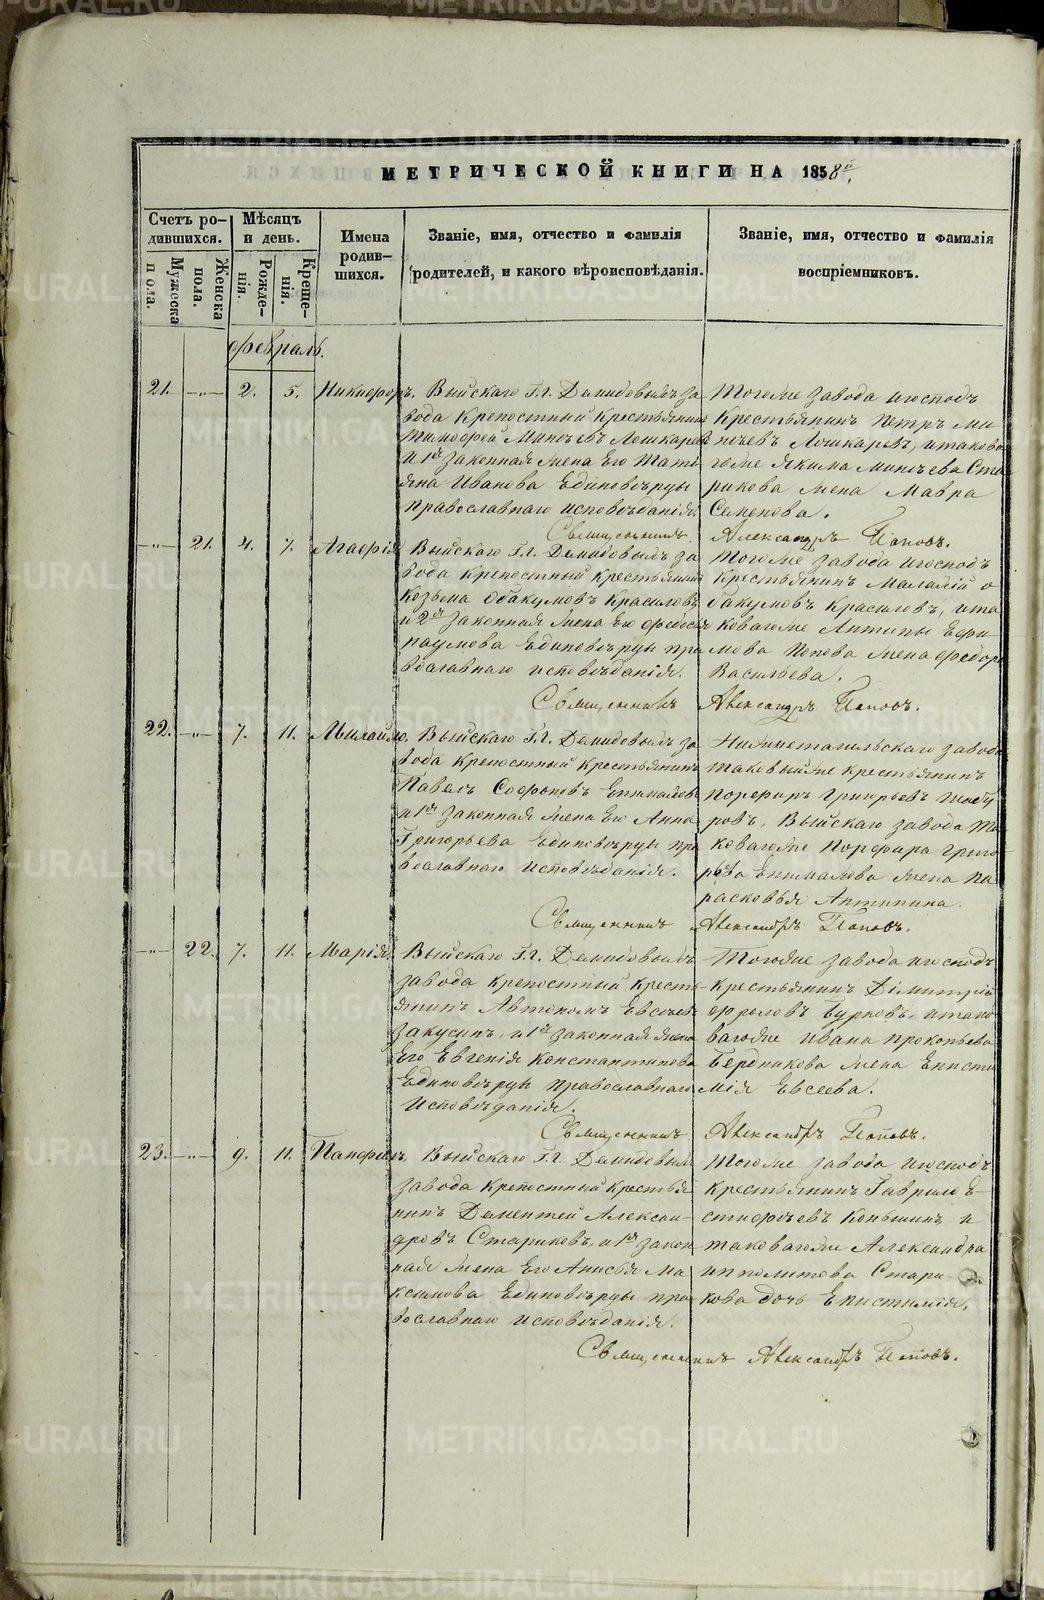 МЕТРИЧЕСКОЙ КНИГИ НА 1858й.
Счетъ ро-
дившихся.
Мѣсяцъ
и день.
Имена
родив-
шихся.
Званіе, имя, отчество и фамилія
родителей, и какого вѣроисповѣданія.
Званіе, имя, отчество и фамилія
воспріемниковъ.
Мужеска
пола.
Женска
пола.
Рожде-
нія.
Креще-
нія.
Февраль.
21. -"- 2. 5. Никифоръ.
Выйскаго Г.г. Демидовыхъ за
вода крепостный крестьянинъ
Тимофей Минѣевъ Лошкаревъ
и 1я законная жена его Тати
яна Иванова Единовѣрцы
православнаго исповѣданія.
Тогоже завода и господъ
Крестьянинъ Петръ Ми
нѣевъ Лошкаревъ, и таково
гоже Якима Минѣева Ста
рикова жена Мавра
Семенова.
Священникъ Александръ Поповъ.
-"- 21. 4. 7. Агафія
Выйскаго Г.г. Демидовыхъ за
вода крепостный крестьянинъ
Козьма Абакумовъ Красиловъ
и 2я законная жена его Федосья
Наумова Единовѣрцы пра
вославнаго исповѣданія.
Тогоже завода и господъ
Крестьянинъ Малафій А
бакумовъ Красиловъ, и та
ковагоже Антипы Ефи
мова Попова жена Федора
Васильева.
Священникъ Александръ Поповъ.
22. -"- 7. 11. Михаилъ.
Выйскаго Г.г. Демидовыхъ за
вода крепостный крестьянинъ
Павелъ Софоновъ
и 1я законная жена его Анна
Григорьева Единовѣрцы пра
вославнаго исповѣданія.
Нижнетагильскаго завода
таковыйже крестьянинъ
Порфиръ Григорьевъ
ровъ, Выйскаго завода та
ковагоже Порфира Григо
рьева жена Па
расковья Антипина.
Священникъ Александръ Поповъ.
-"- 22. 7. 11. Марія.
Выйскаго Г.г. Демидовыхъ
завода крепостный кресть
янинъ Автономъ Евсѣевъ
Закусинъ, и 1я законная жена
Его Евгенія Константинова
Единовѣрцы православнаго
исповѣданія.
Тогоже завода и господъ
крестьянинъ Димитрій
Фроловъ Бурковъ, и тако
вагоже Ивана Прокопьева
Бердникова жена Еписти
мія Евсеева.
Священникъ Александръ Поповъ.
23. -"- 9. 11. Панфилъ.
Выйскаго Г.г. Демидовыхъ
завода крепостный крестья
нинъ Дементей Алексан
дровъ Стариковъ, и 1я закон
ная жена его Анисья Ма
ксимова Единовѣрцы пра
вославнаго исповѣданія.
Тогоже завода и господъ
крестьянинъ Гаврило Е-
стифѣевъ Коньшинъ и
таковагоже Александра
Ипполитова Стари-
кова дочь Епистимія.
Священникъ Александръ Поповъ.
METRIKI.GASO-URAL.RU